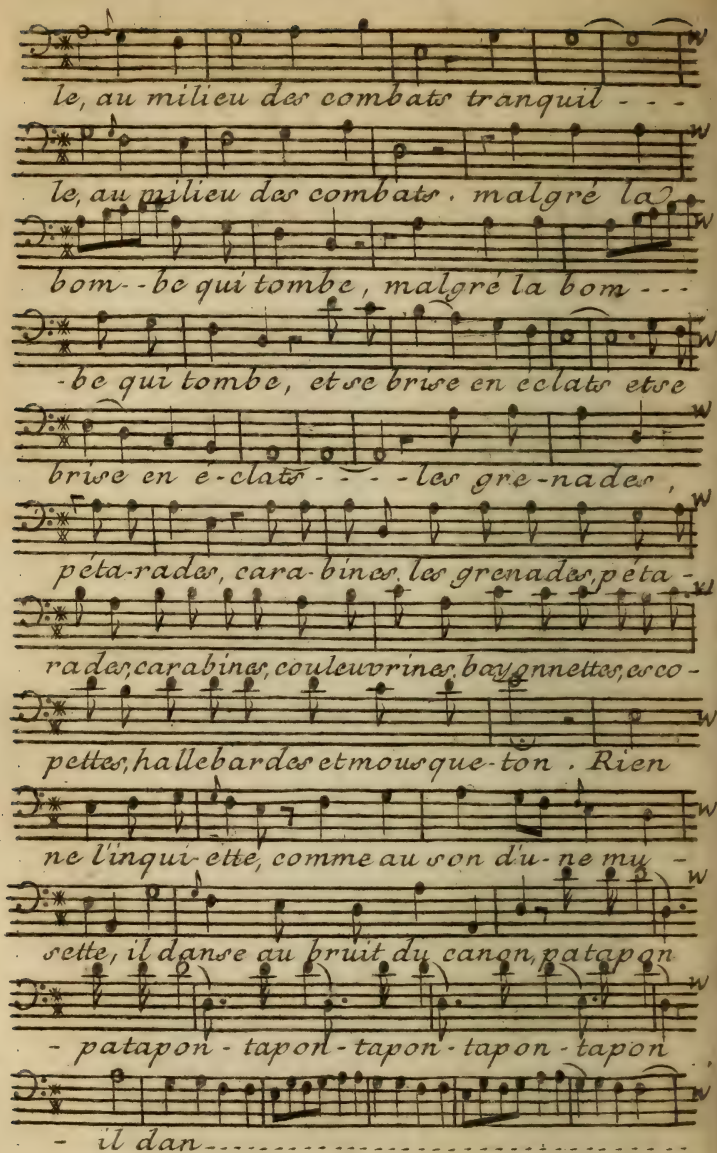 le, au milieu des combats tranquil - - -
le, au milieu des combats. malgré la
bom--be qui tombe, malgré la bom ---
-be qui tombe, et se brise en eclats et se
brise en é-clats - - - -les gre-nades,
péta-rades, cara-bines, les grenades, péta -
rades, carabines, couleuvrines, bayonnettes, esco-
pettes, hallebardes et mousque-ton. Rien
ne l'inqui-ette, comme au son d'u-ne mu -
sette, il danse au bruit du canon, patapon
- patapon - tapon - tapon - tapon - tapon
- il dan..............................